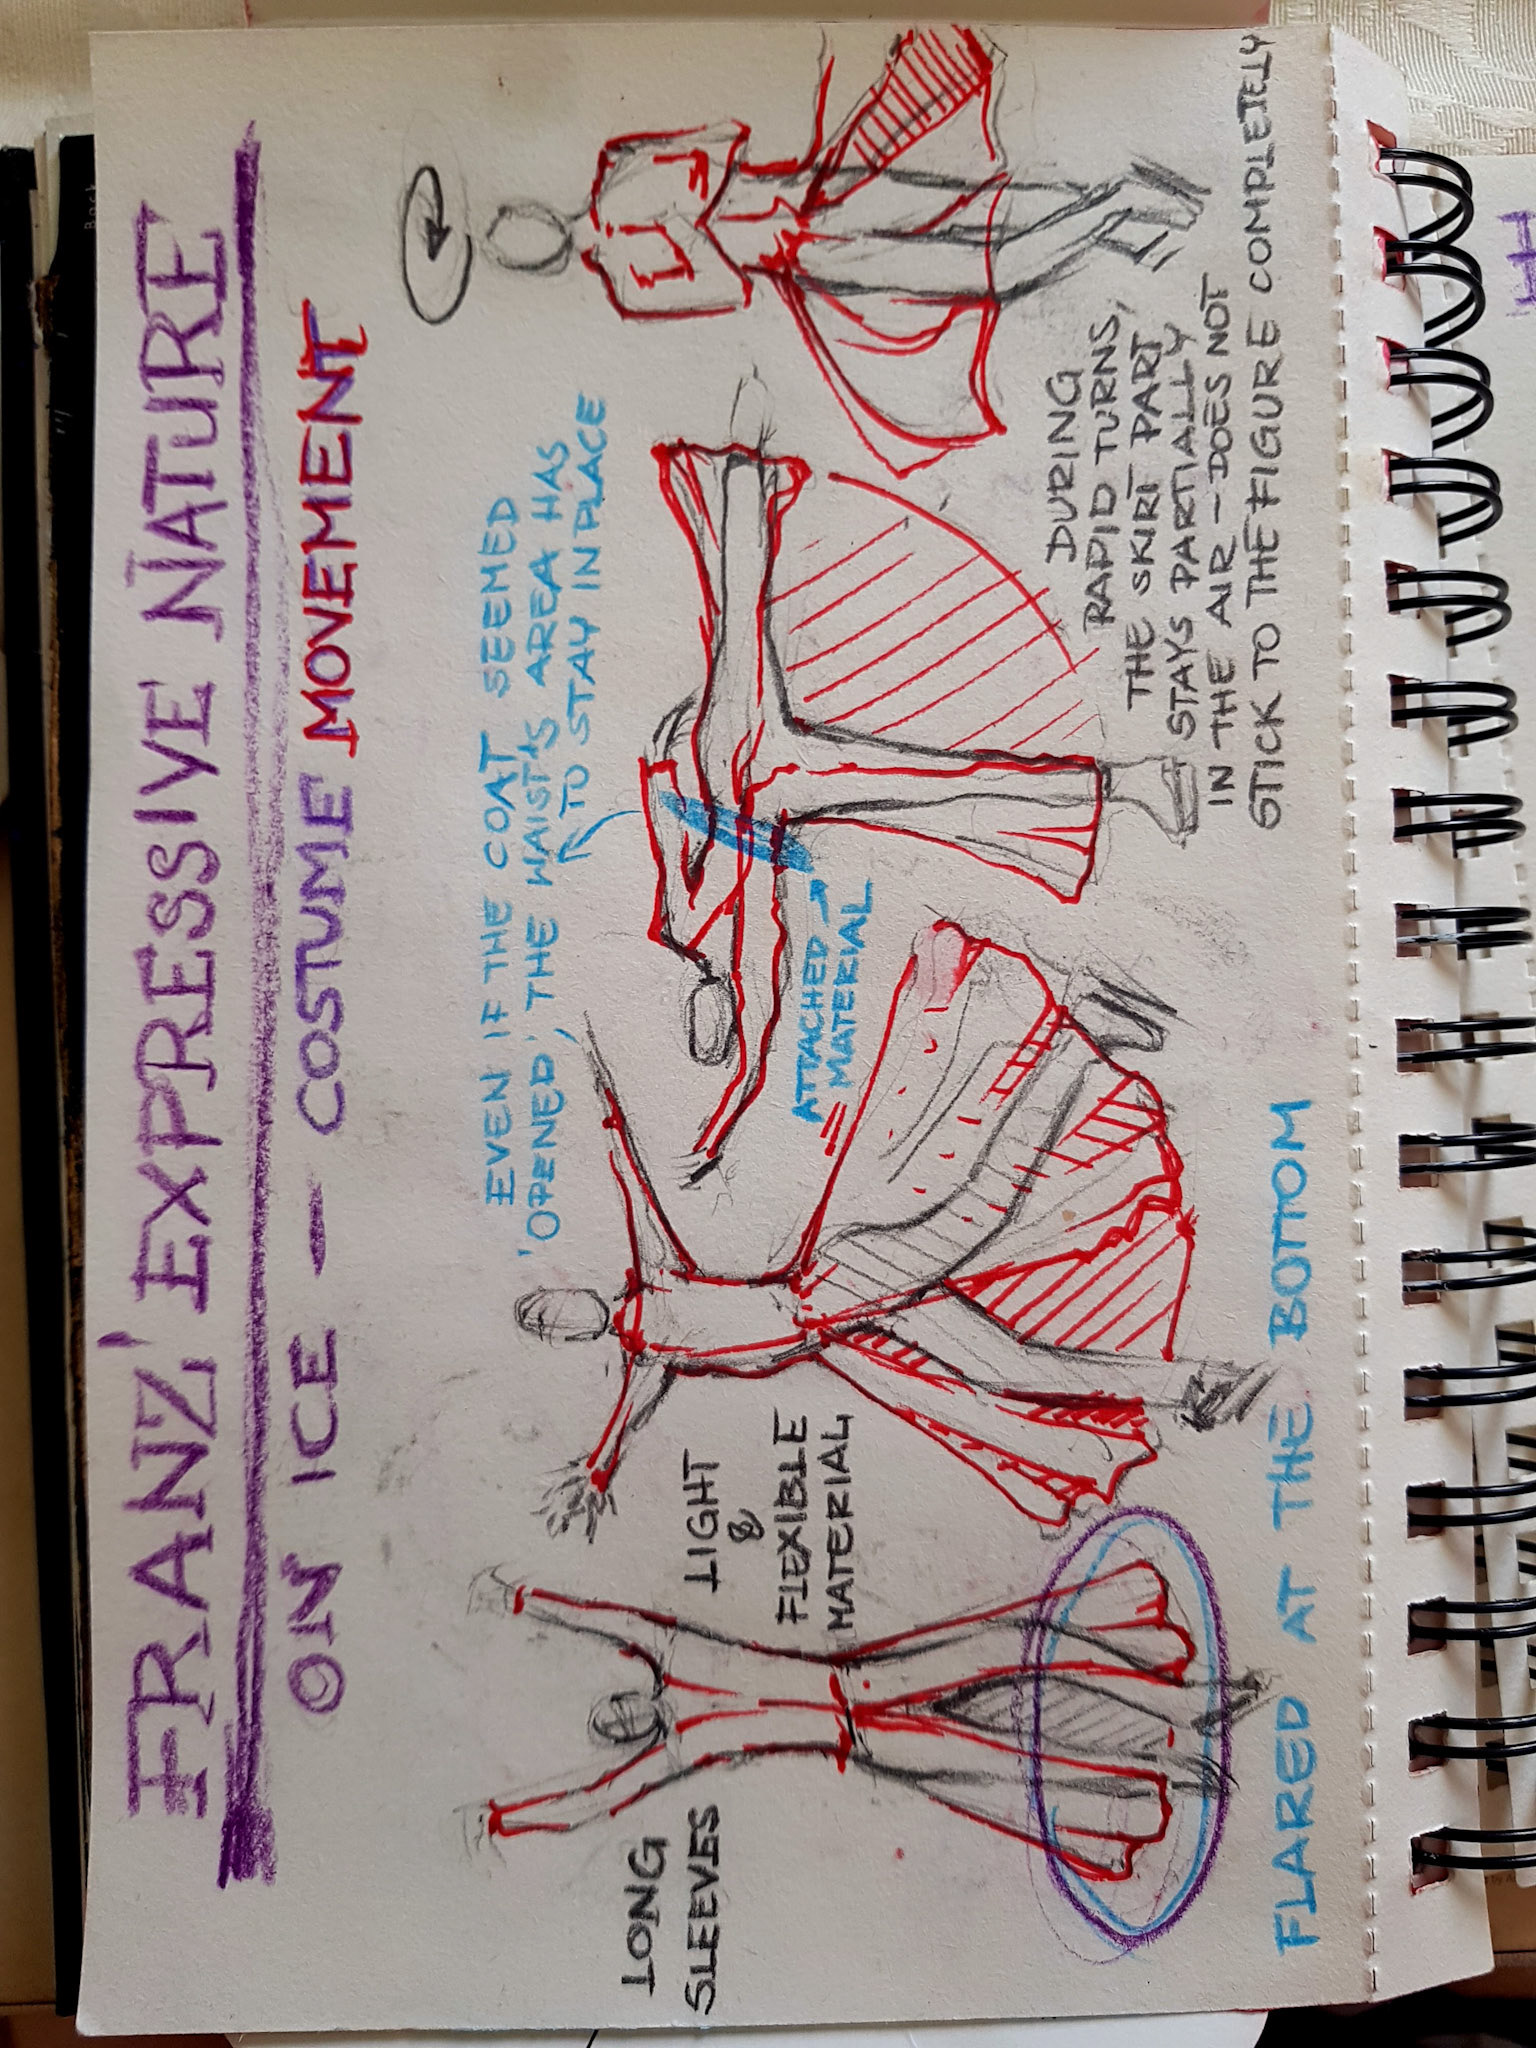 FRANZ' EXPRESSIVE NATURE
ON ICE — COSTUME MOVEMENT
EVEN IF THE COAT SEEMED
'OPENED', THE WAIST'S AREA HAS
TO STAY IN PLACE
ATTACHED
MATERIAL
LONG
SLEEVES
LIGHT
&
FLEXIBLE
MATERIAL
DURING
RAPID TURNS,
THE SKIRT PART
STAYS PARTIALLY
IN THE AIR - DOES NOT
STICK TO THE FIGURE COMPLETELY
FLARED AT THE BOTTOM
Back